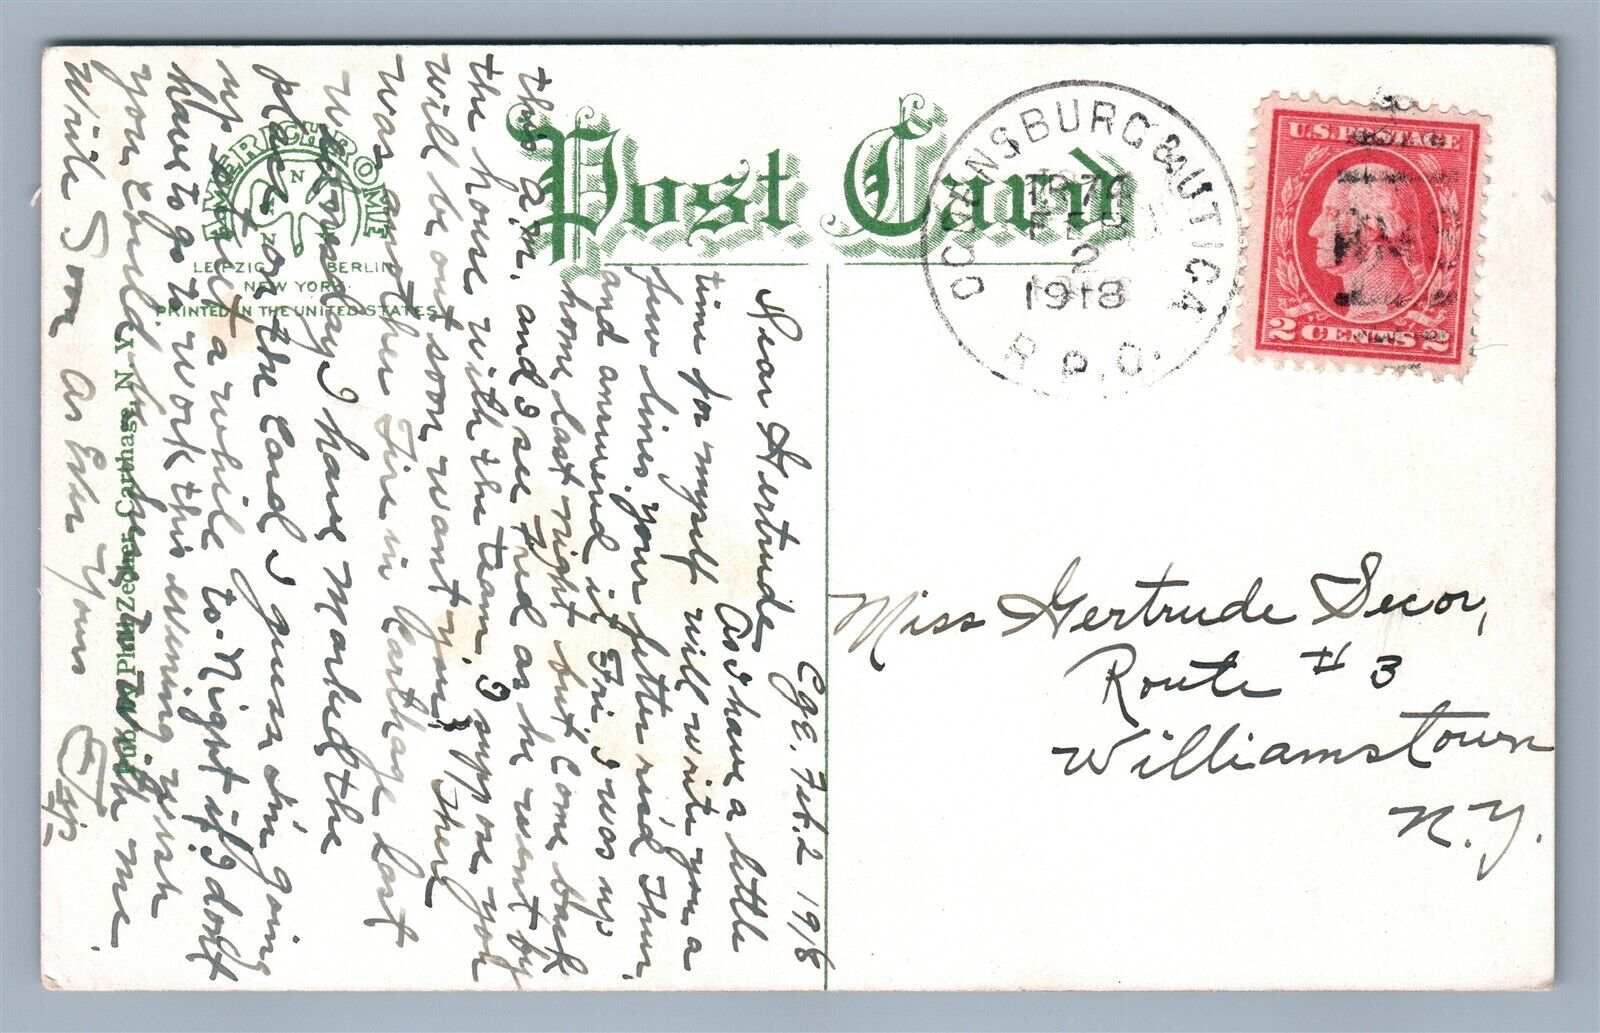 Post Card
AMERICHROME
LEIPZIG BERLIN
NEW YORK
PRINTED IN THE UNITED STATES
Pub. by Phil Zecher, Carthage, N.Y.
OGDENSBURG & UTICA
FEB
2
1918
R.P.O.
U.S. POSTAGE
2 CENTS 2
Cge. Feb. 2 1918
Dear Gertrude
As I have a little
time for myself will write you a
few lines, your letter rec'd Thur.
and answered it Fri. I was up
home last night but come back
this a.m. and I see Fred as he went by
the house with the team. I suppose you
will be out soon want you? There
was another Fire in Carthage last
Wednesday I have marked the
place on the card I guess I'm going
up street a while to-Night if I don't
have to go to work this evening wish
you could be here with me.
Write Soon As Ever Yours
Miss Gertrude Secor,
Route # 3
Williamstown
N.Y.